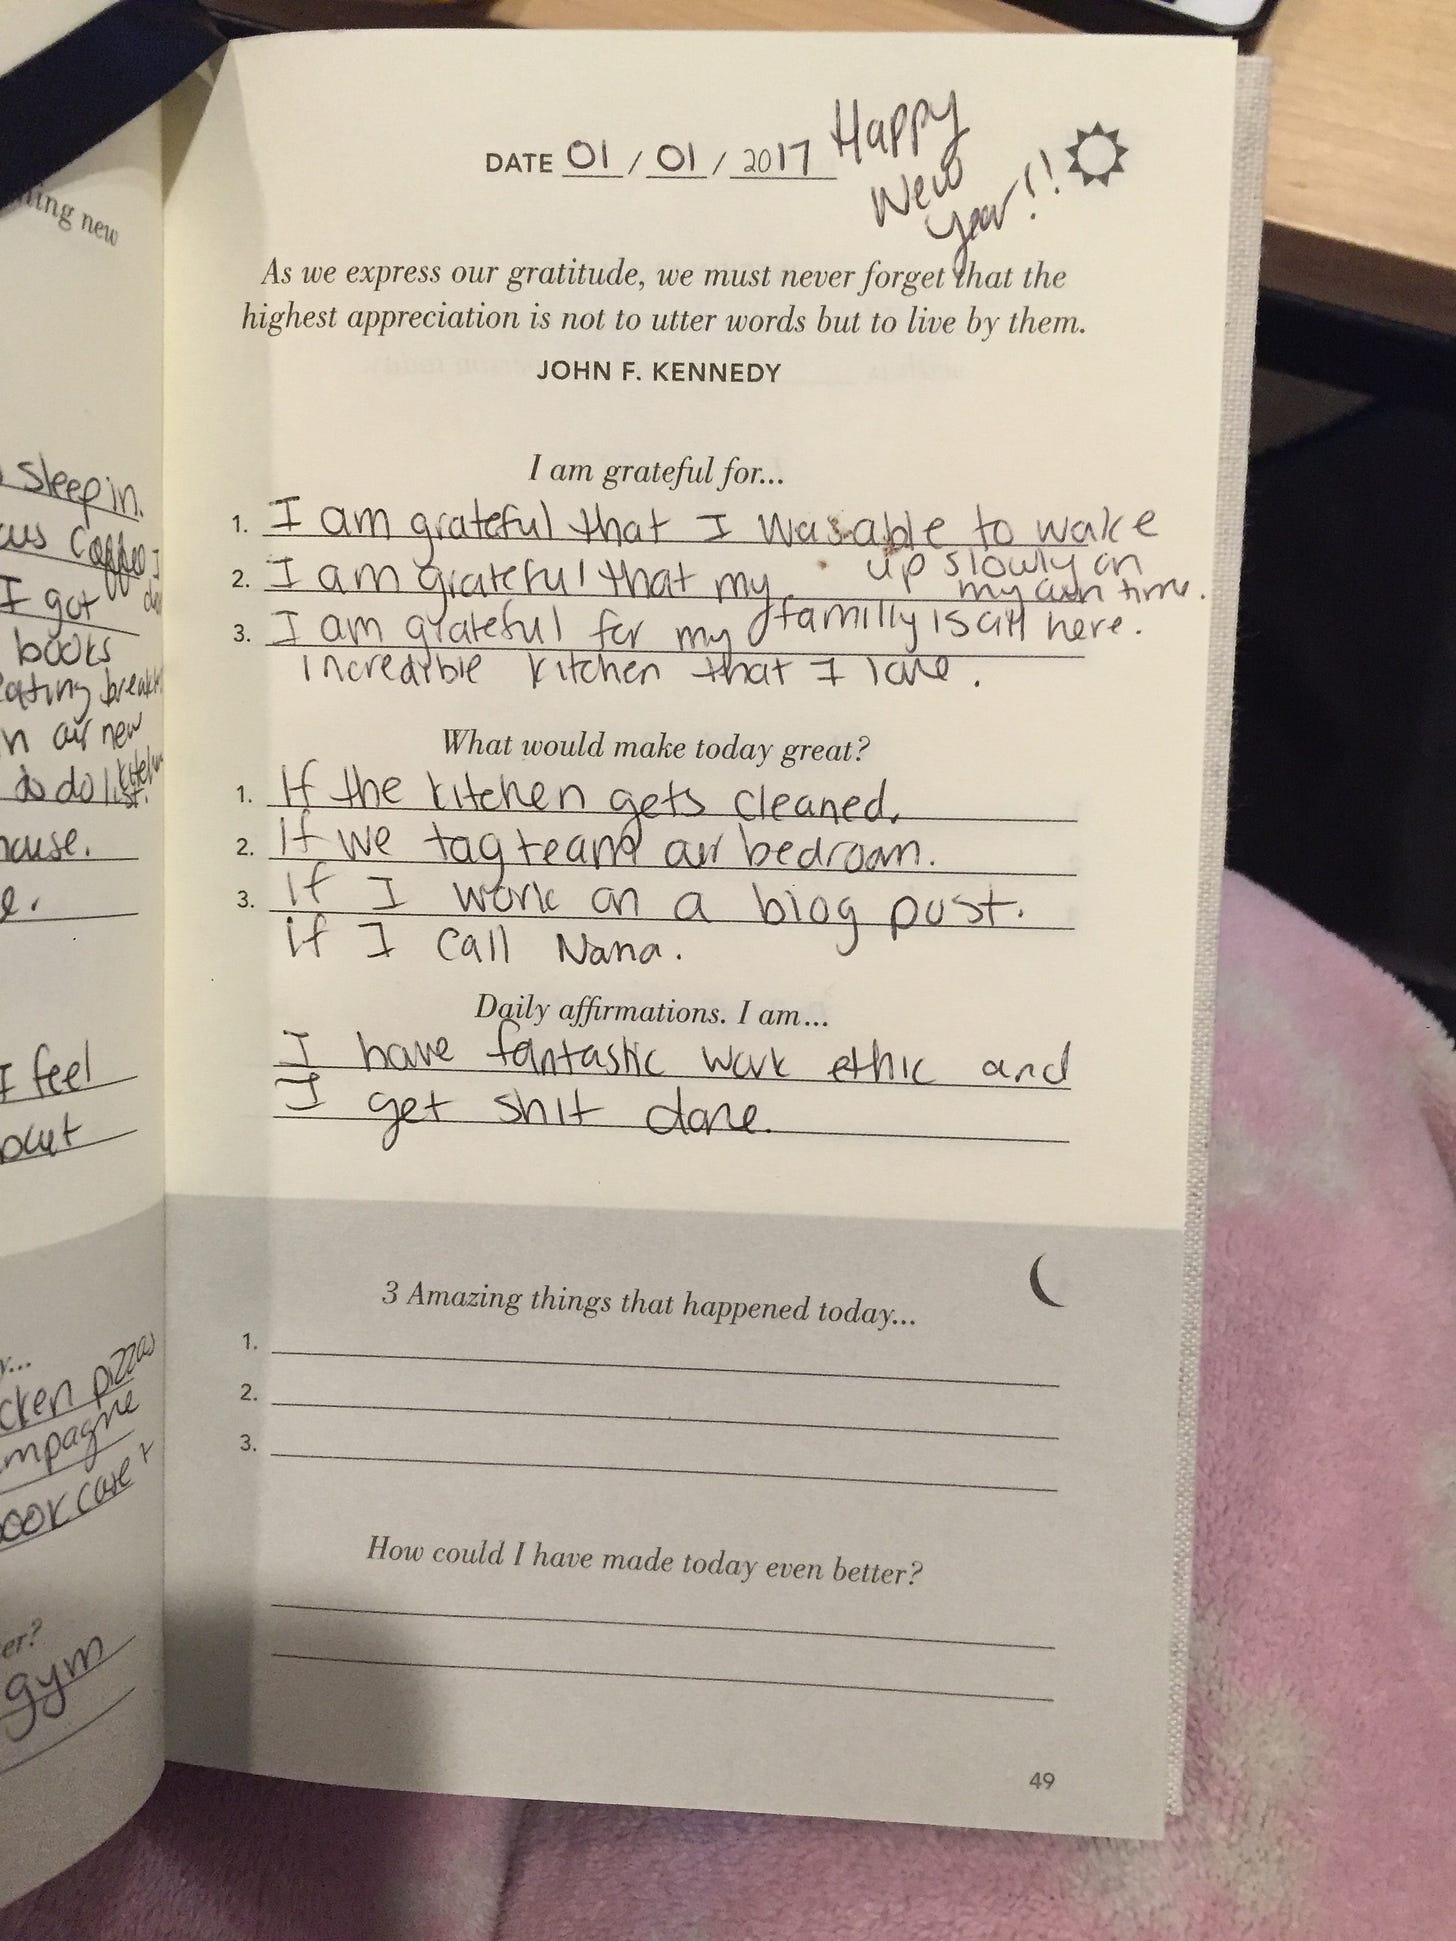 ting new
sleep in.
Coffee I
I got
books
eating breakf
in our new
kitchen
to do list.
house.
e.
I feel
out
y...
cken pizzas
mpagne
ook case +
er?
gym
DATE 01 / 01 / 2017 Happy
New
Year!!
As we express our gratitude, we must never forget that the
highest appreciation is not to utter words but to live by them.
JOHN F. KENNEDY
I am grateful for...
1. I am grateful that I was able to wake
up slowly on
2. I am grateful that my
my own time.
familly is all here.
3. I am grateful for my
incredible kitchen that I love.
What would make today great?
1. If the kitchen gets cleaned.
2. If we tag team our bedroom.
3. If I work on a blog post.
if I call Nana.
Daily affirmations. I am...
I have fantastic work ethic and
I get shit done.
3 Amazing things that happened today...
1.
2.
3.
How could I have made today even better?
49